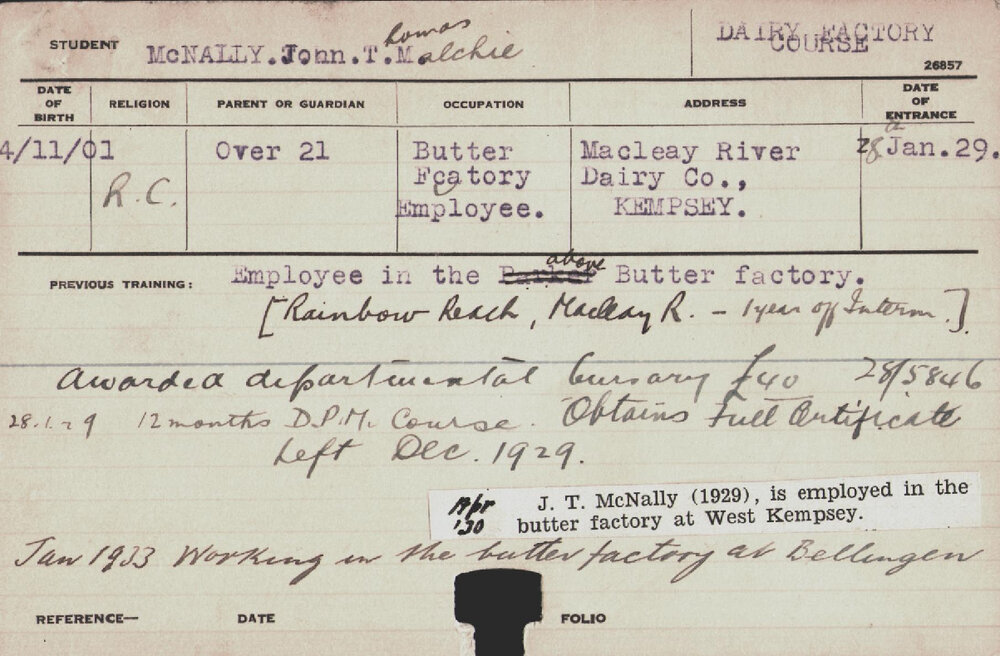 STUDENT McNALLY.John.T.Malchie
homas
DAIRY FACTORY
COURSE
26857
DATE OF BIRTH RELIGION PARENT OR GUARDIAN OCCUPATION ADDRESS DATE OF ENTRANCE
4/11/01 Over 21 Butter Macleay River 28th Jan.29.
R.C. Fcatory Dairy Co.,
Employee. KEMPSEY.
above
PREVIOUS TRAINING: Employee in the Parker Butter factory.
[Rainbow Reach, Macleay R. - 1 year off Interm.]
Awarded departmental bursary £40 28/5846
28.1.29 12 months D.P.M. Course. Obtains Full Certificate
Left Dec. 1929.
Apr J. T. McNally (1929), is employed in the
'30 butter factory at West Kempsey.
Jan 1933 Working in the butter factory at Bellingen
REFERENCE— DATE FOLIO